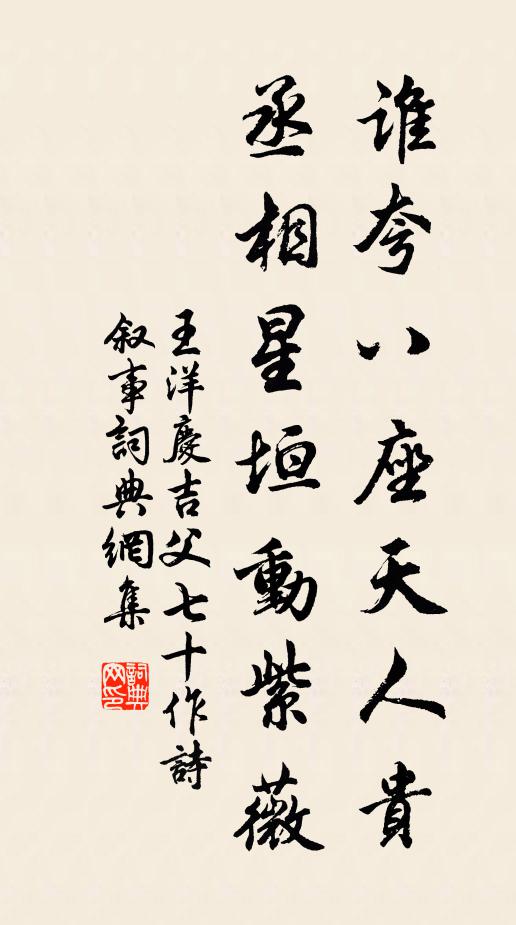 誰夸八座天人貴
丞相星垣動紫薇
王洋慶吉父七十作詩
叙事詞典網集
詞典网印